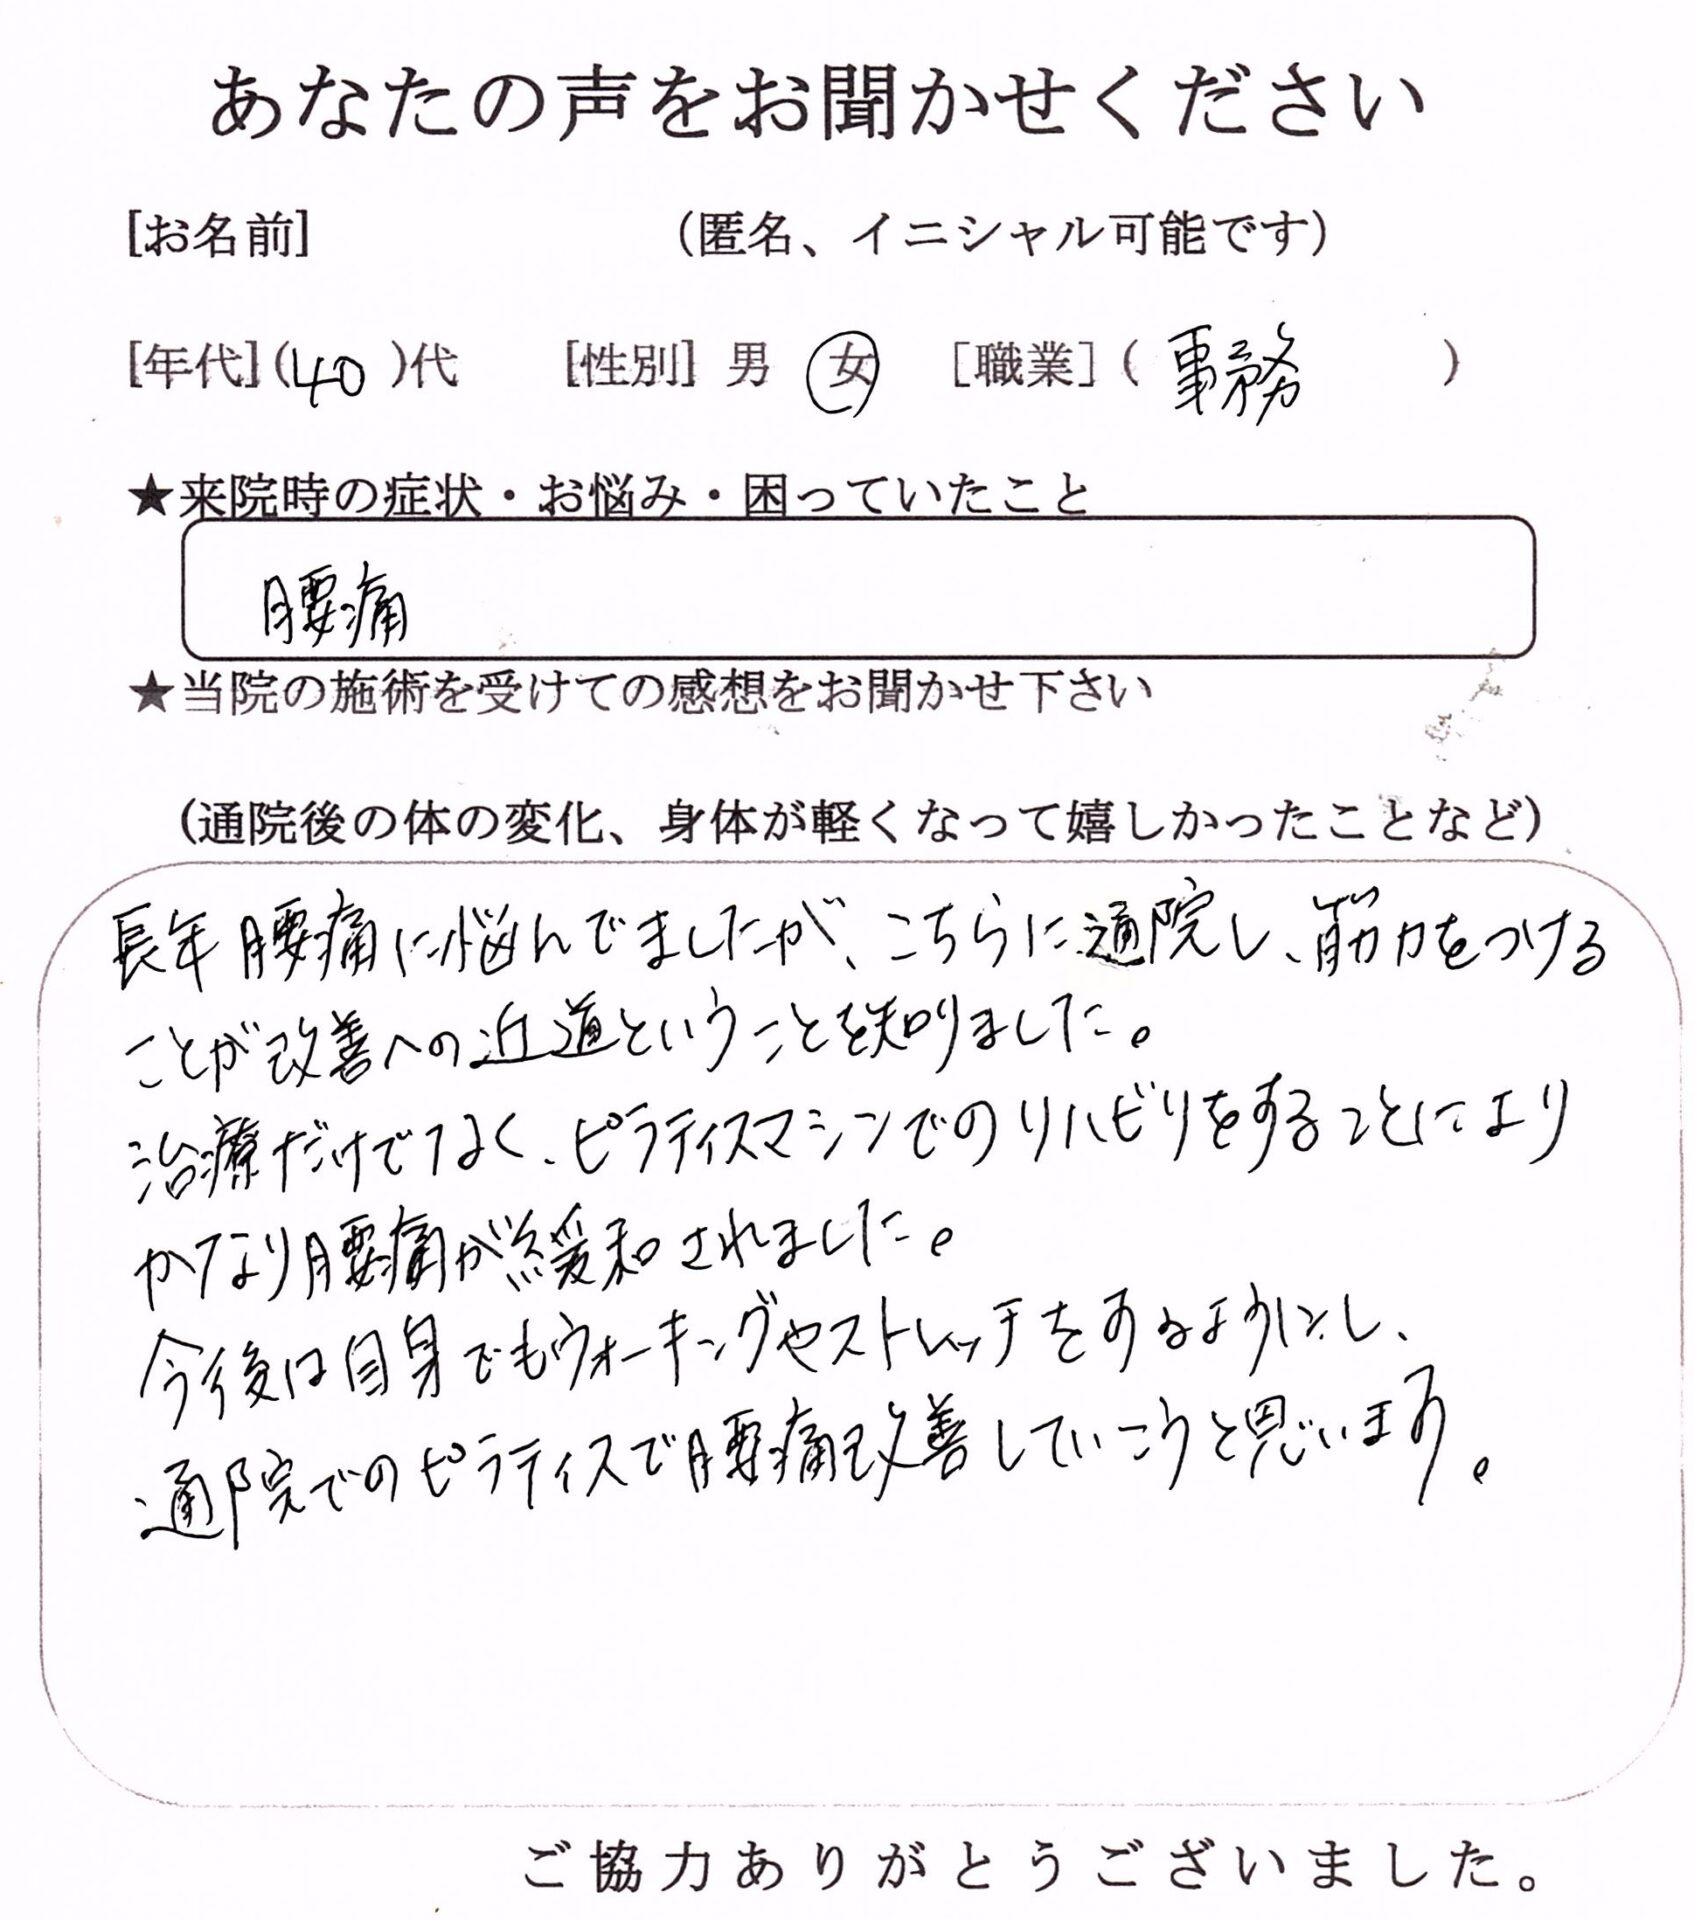 あなたの声をお聞かせください
[お名前] (匿名、イニシャル可能です)
[年代](40)代 [性別] 男 女 [職業](事務)
★来院時の症状・お悩み・困っていたこと
腰痛
★当院の施術を受けての感想をお聞かせ下さい
(通院後の体の変化、身体が軽くなって嬉しかったことなど)
長年腰痛に悩んでましたが、こちらに通院し、筋力をつける
ことが改善への近道ということを知りました。
治療だけでなく、ピラティスマシンでのリハビリをすることにより
かなり腰痛が緩和されました。
今後は自身でもウォーキングやストレッチをするようにし、
通院でのピラティスで腰痛改善していこうと思います。
ご協力ありがとうございました。